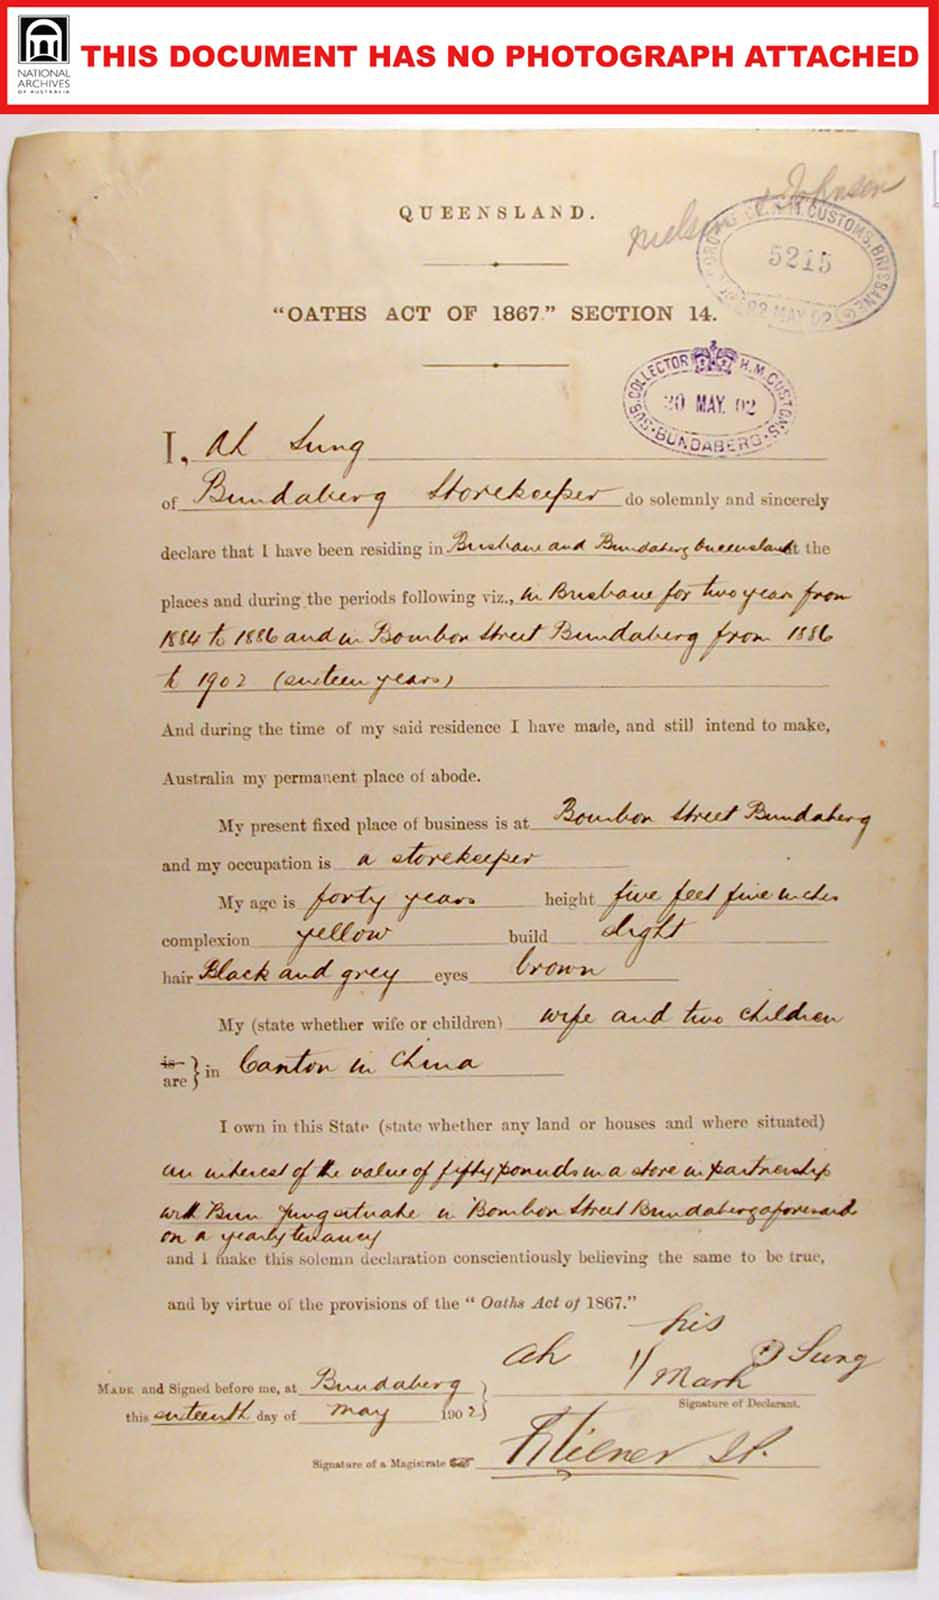 NATIONAL
ARCHIVES
OF AUSTRALIA
THIS DOCUMENT HAS NO PHOTOGRAPH ATTACHED
Nielson & Johnson
QUEENSLAND.
H.M. CUSTOMS, BRISBANE
5215
22 MAY 02
"OATHS ACT OF 1867." SECTION 14.
SUB. COLLECTOR H.M. CUSTOMS
20 MAY. 02
BUNDABERG
I, Ah Sung
of Bundaberg Storekeeper do solemnly and sincerely
declare that I have been residing in Brisbane and Bundaberg Queensland at the
places and during the periods following viz., in Brisbane for two years from
1884 to 1886 and in Bourbon Street Bundaberg from 1886
to 1902 (sixteen years)
And during the time of my said residence I have made, and still intend to make,
Australia my permanent place of abode.
My present fixed place of business is at Bourbon Street Bundaberg
and my occupation is a storekeeper
My age is forty years height five feet five inches
complexion yellow build slight
hair Black and grey eyes brown
My (state whether wife or children) wife and two children
is
are } in Canton in China
I own in this State (state whether any land or houses and where situated)
an interest of the value of fifty pounds in a store in partnership
with Bun Jung situate in Bourbon Street Bundaberg aforesaid
on a yearly tenancy
and I make this solemn declaration conscientiously believing the same to be true,
and by virtue of the provisions of the "Oaths Act of 1867."
his
Ah Sung
Mark
MADE and Signed before me, at Bundaberg
Signature of Declarant.
this sixteenth day of May 1902
Signature of a Magistrate Milner JP.